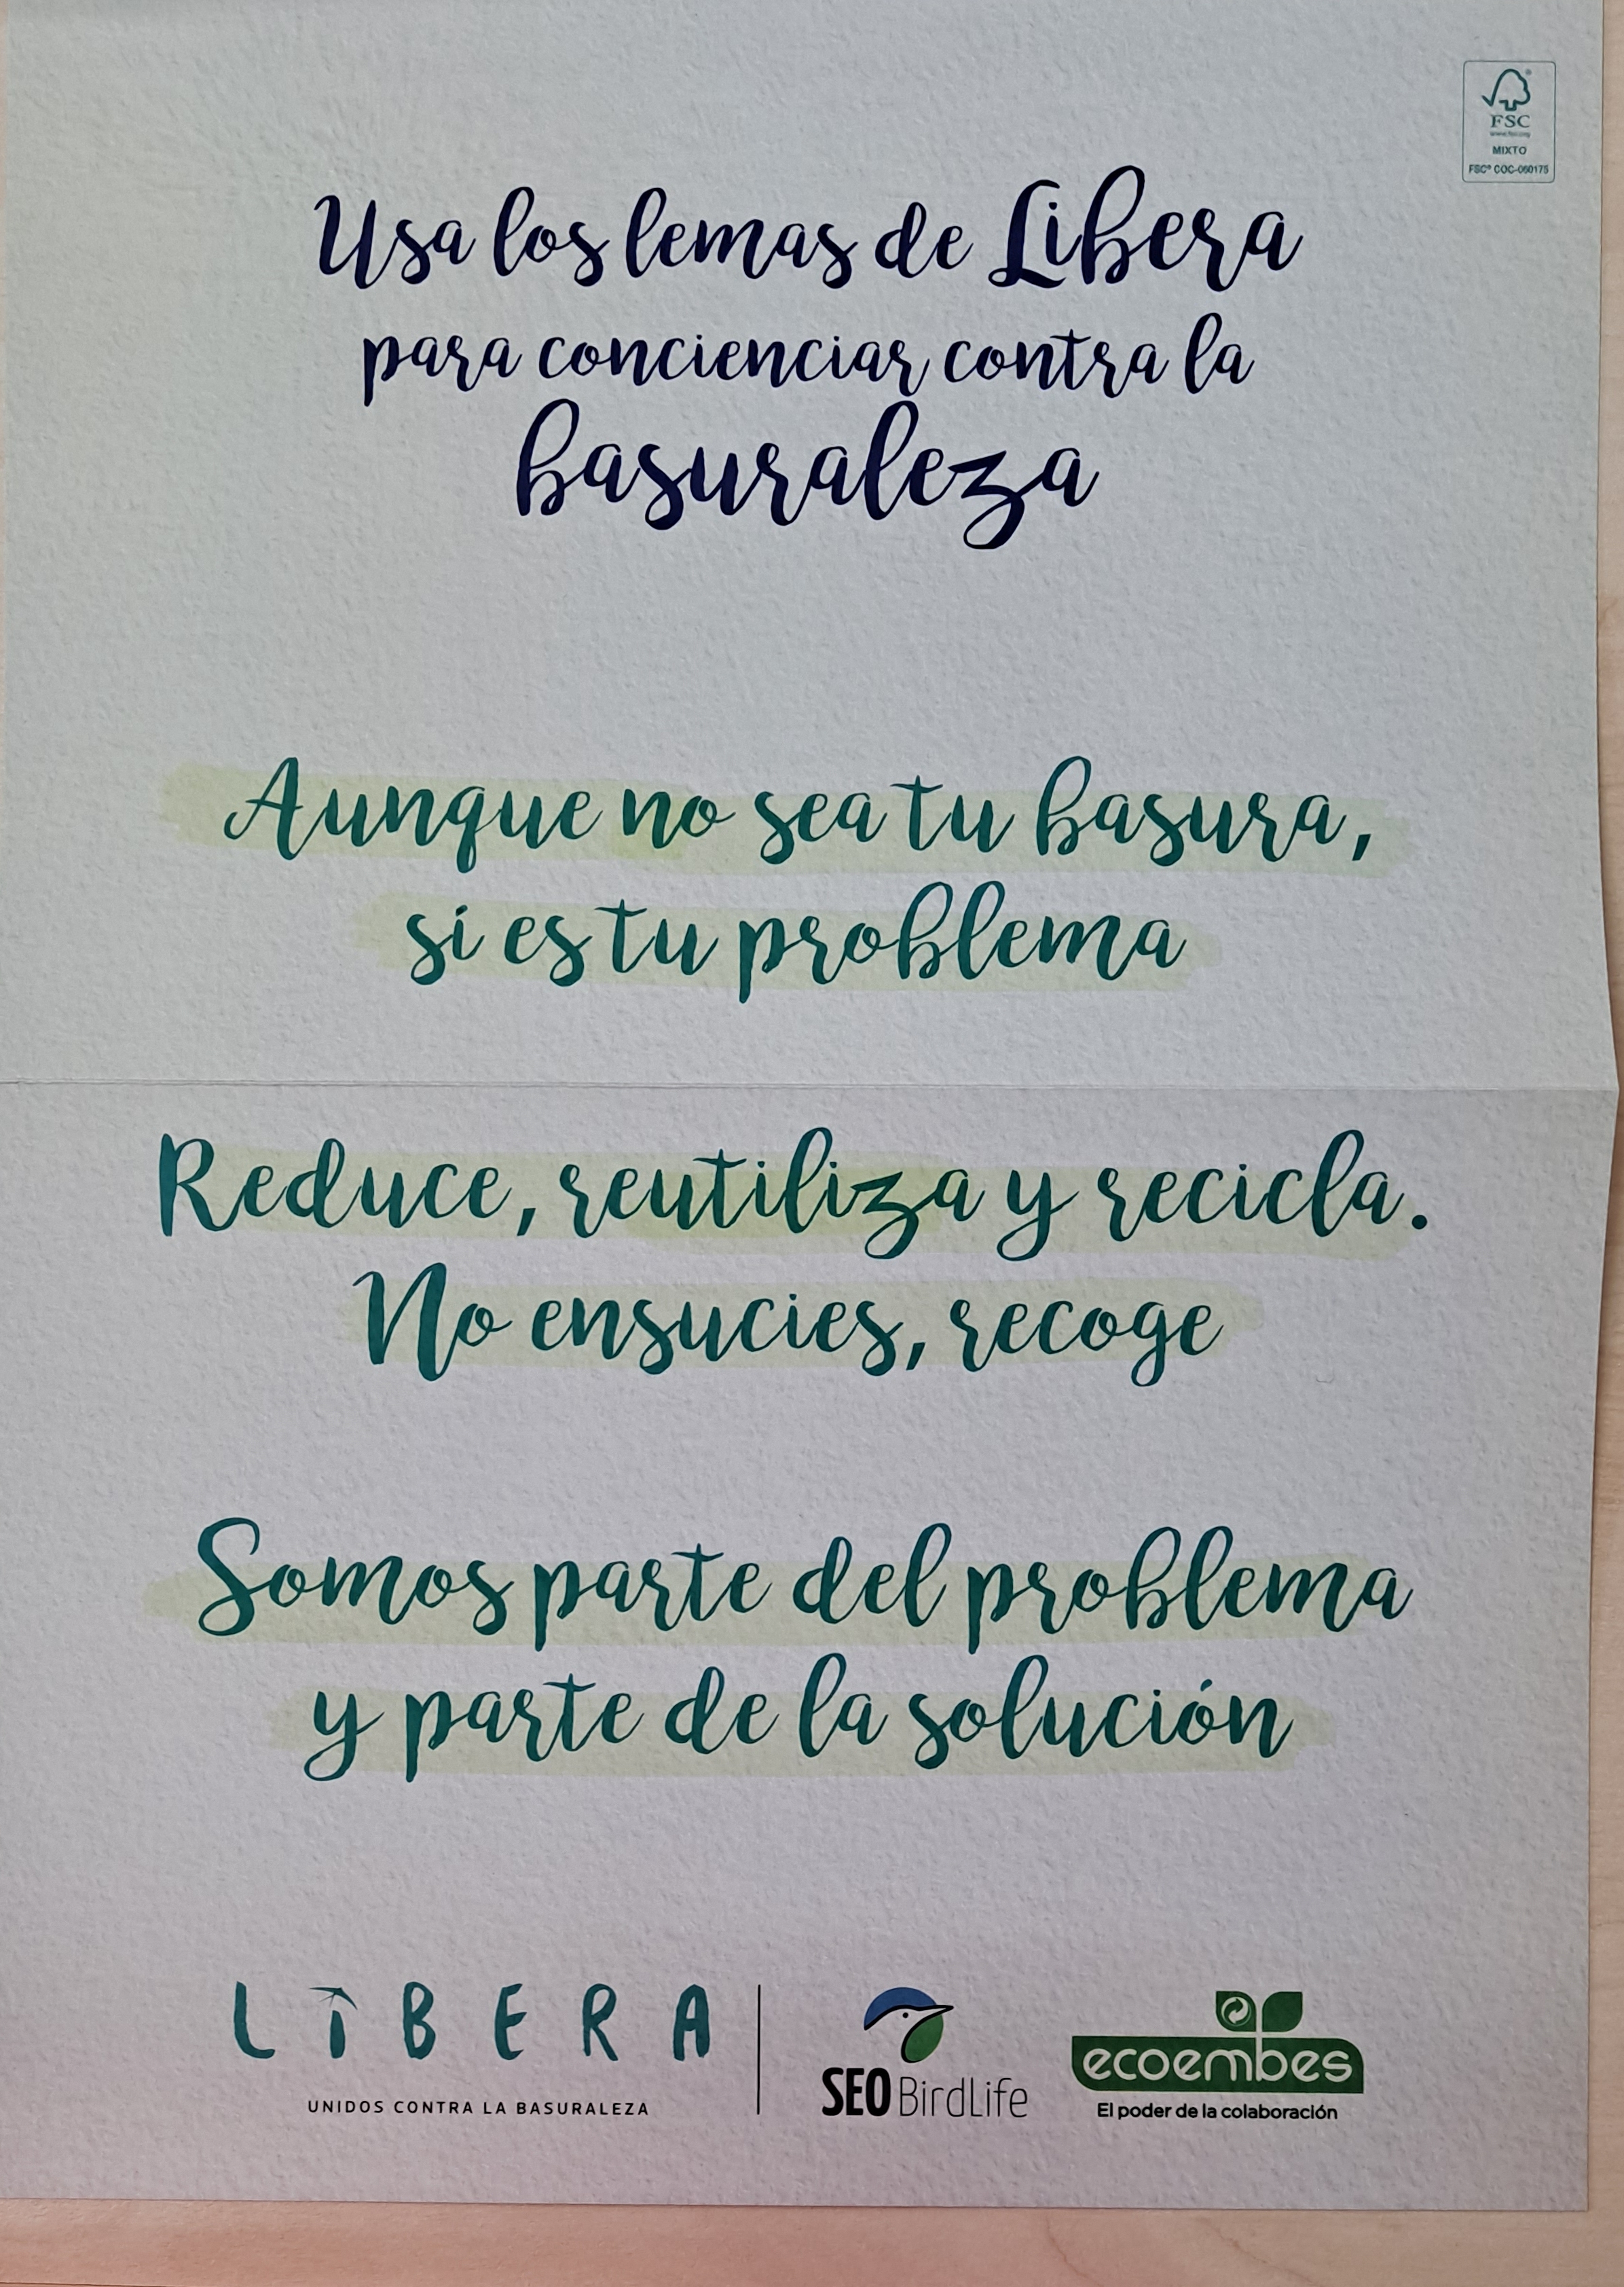 FSC
www.fsc.org
MIXTO
FSC® COC-060175
Usa los lemas de Libera
para concienciar contra la
basuraleza
Aunque no sea tu basura,
sí es tu problema
Reduce, reutiliza y recicla.
No ensucies, recoge
Somos parte del problema
y parte de la solución
LIBERA
UNIDOS CONTRA LA BASURALEZA
SEO BirdLife
ecoembes
El poder de la colaboración